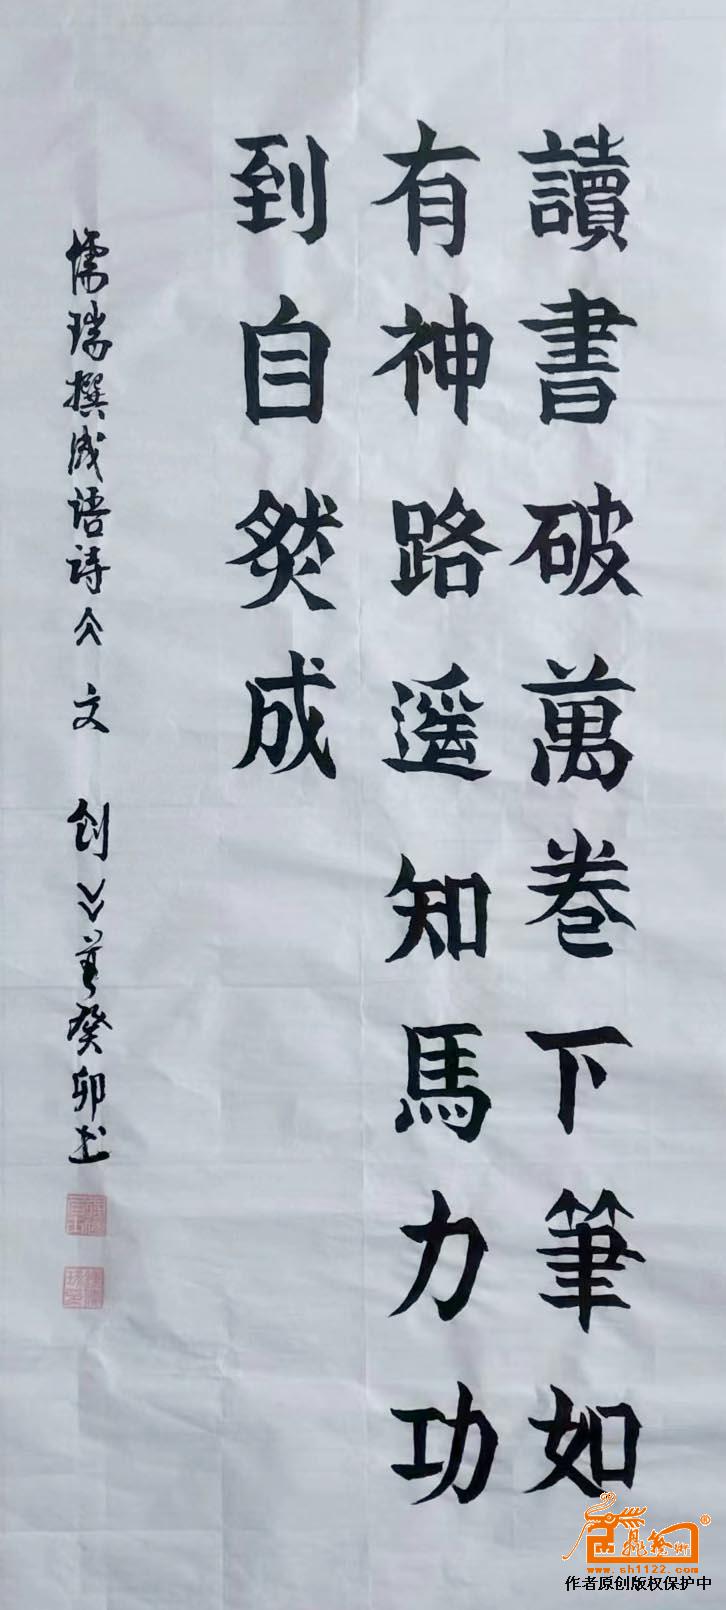 讀書破萬卷下筆如
有神路遥知馬力功
到自然成
儒瑞撰成语诗 文 创 癸卯书
www.sh1122.com
作者原创版权保护中